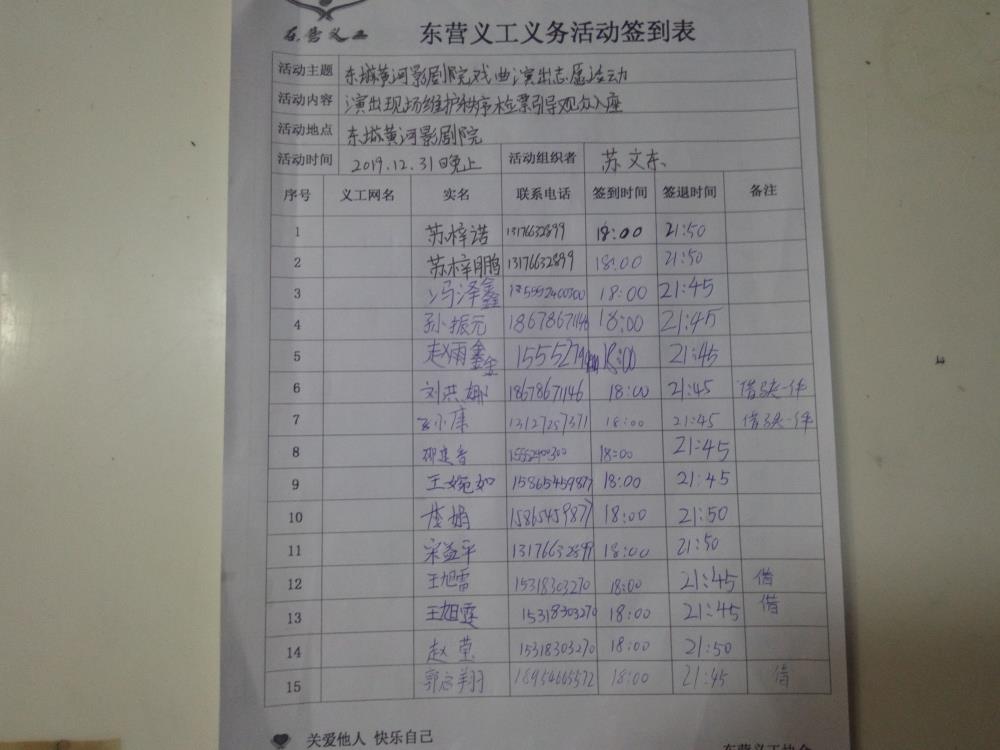 东营义工
东营义工义务活动签到表
活动主题 东城黄河影剧院戏曲演出志愿活动
活动内容 演出现场维护秩序检票引导观众入座
活动地点 东城黄河影剧院
活动时间 2019.12.31日晚上 活动组织者 苏文东
序号 义工网名 实名 联系电话 签到时间 签退时间 备注
1 苏梓诺 13176632899 18:00 21:50
2 苏梓鹏 13176632899 18:00 21:50
3 冯泽鑫 18:00 21:45
4 孙振元 18678671146 18:00 21:45
5 赵雨鑫 18:00 21:45
6 刘洪娜 18678671146 18:00 21:45 借 一件
7 13127257371 18:00 21:45 借 一件
8 18:00 21:45
9 王婉如 15865459877 18:00 21:45
10 15865459877 18:00 21:50
11 宋益平 13176632899 18:00 21:50
12 王旭雷 15318303270 18:00 21:45 借
13 15318303270 18:00 21:45 借
14 赵莹 15318303270 18:00 21:50
15 18954665572 18:00 21:45 借
关爱他人 快乐自己
东营义工协会